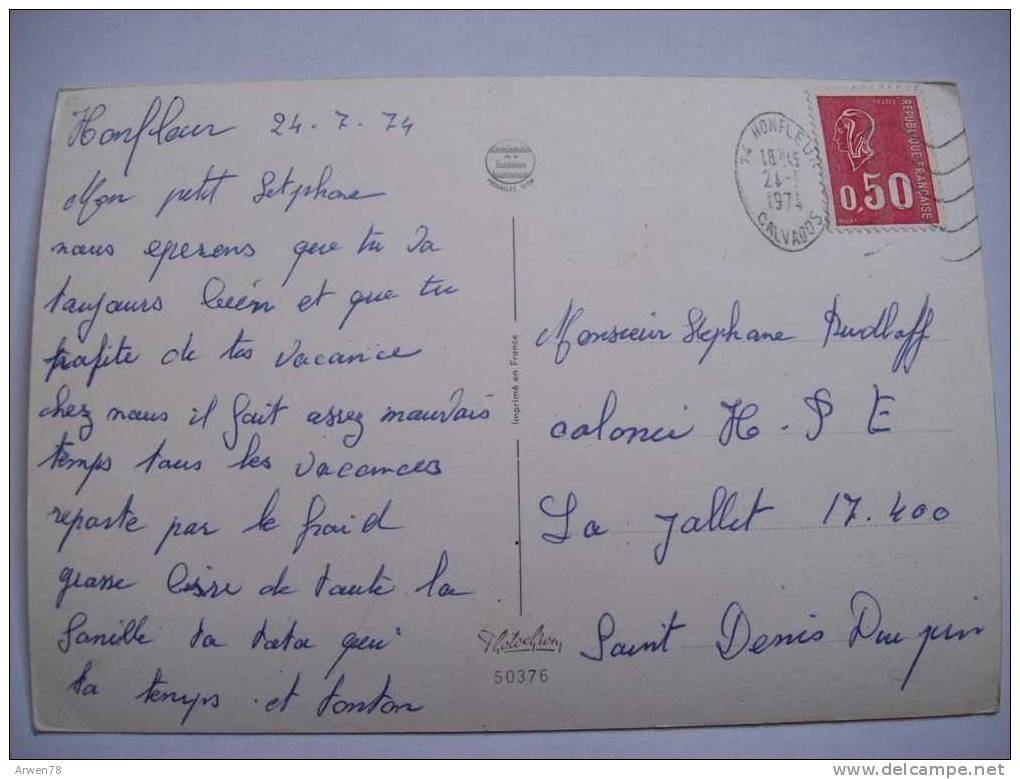 Honfleur 24-7-74
Mon petit Setphane
nous eperens que tu va
toujours bien et que tu
profite de tes vacance
chez nous il fait assez mauvais
temps tous les vacances
reparte par le froid
grosse bise de toute la
famille ta tata qui
ta temps et tonton
MÉDAILLE D'OR
Imprimé en France
Photochrom
50376
14 HONFLEUR
18H45
24-7
1974
CALVADOS
REPUBLIQUE FRANÇAISE
0,50
Monsieur Stephane Rudloff
colonei H. P E
La Jallet 17.400
Saint Denis Du pin
Arwen78
www.delcampe.net